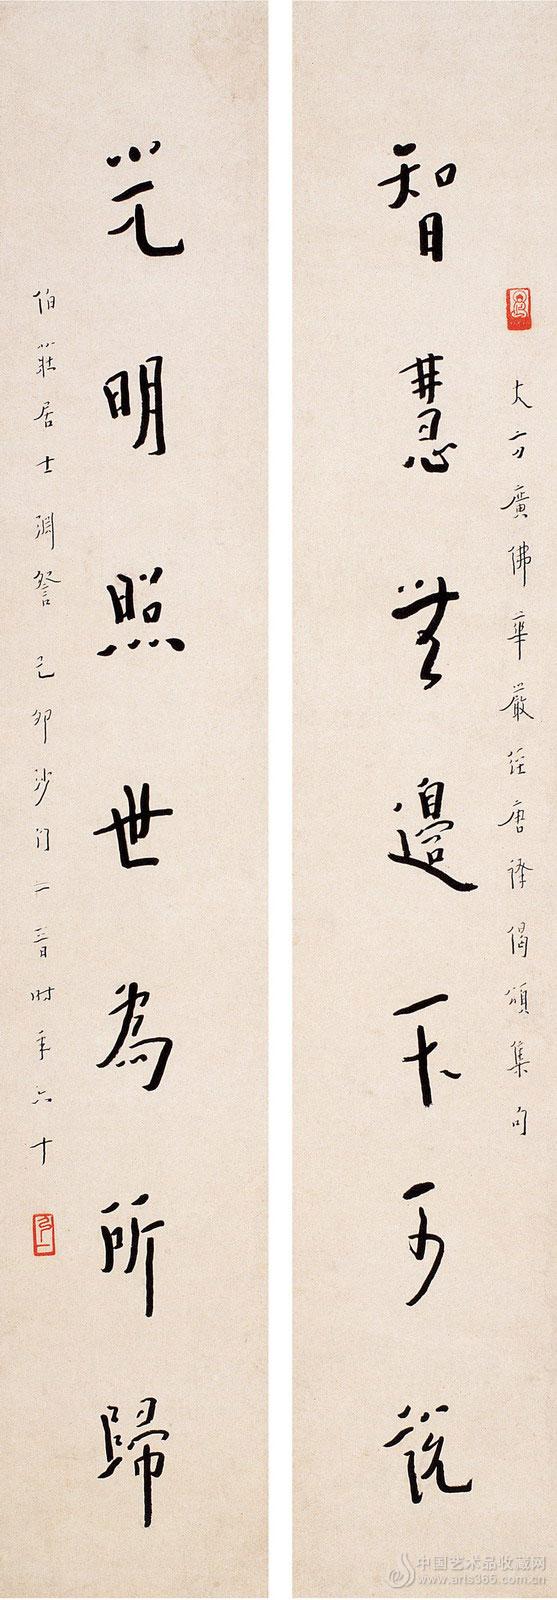 大方廣佛華嚴經唐譯偈頌集句
智慧無邊不可說
光明照世為所歸
伯莊居士淵詧 己卯沙門一音時年六十
中国艺术品收藏网
www.arts365.com.cn